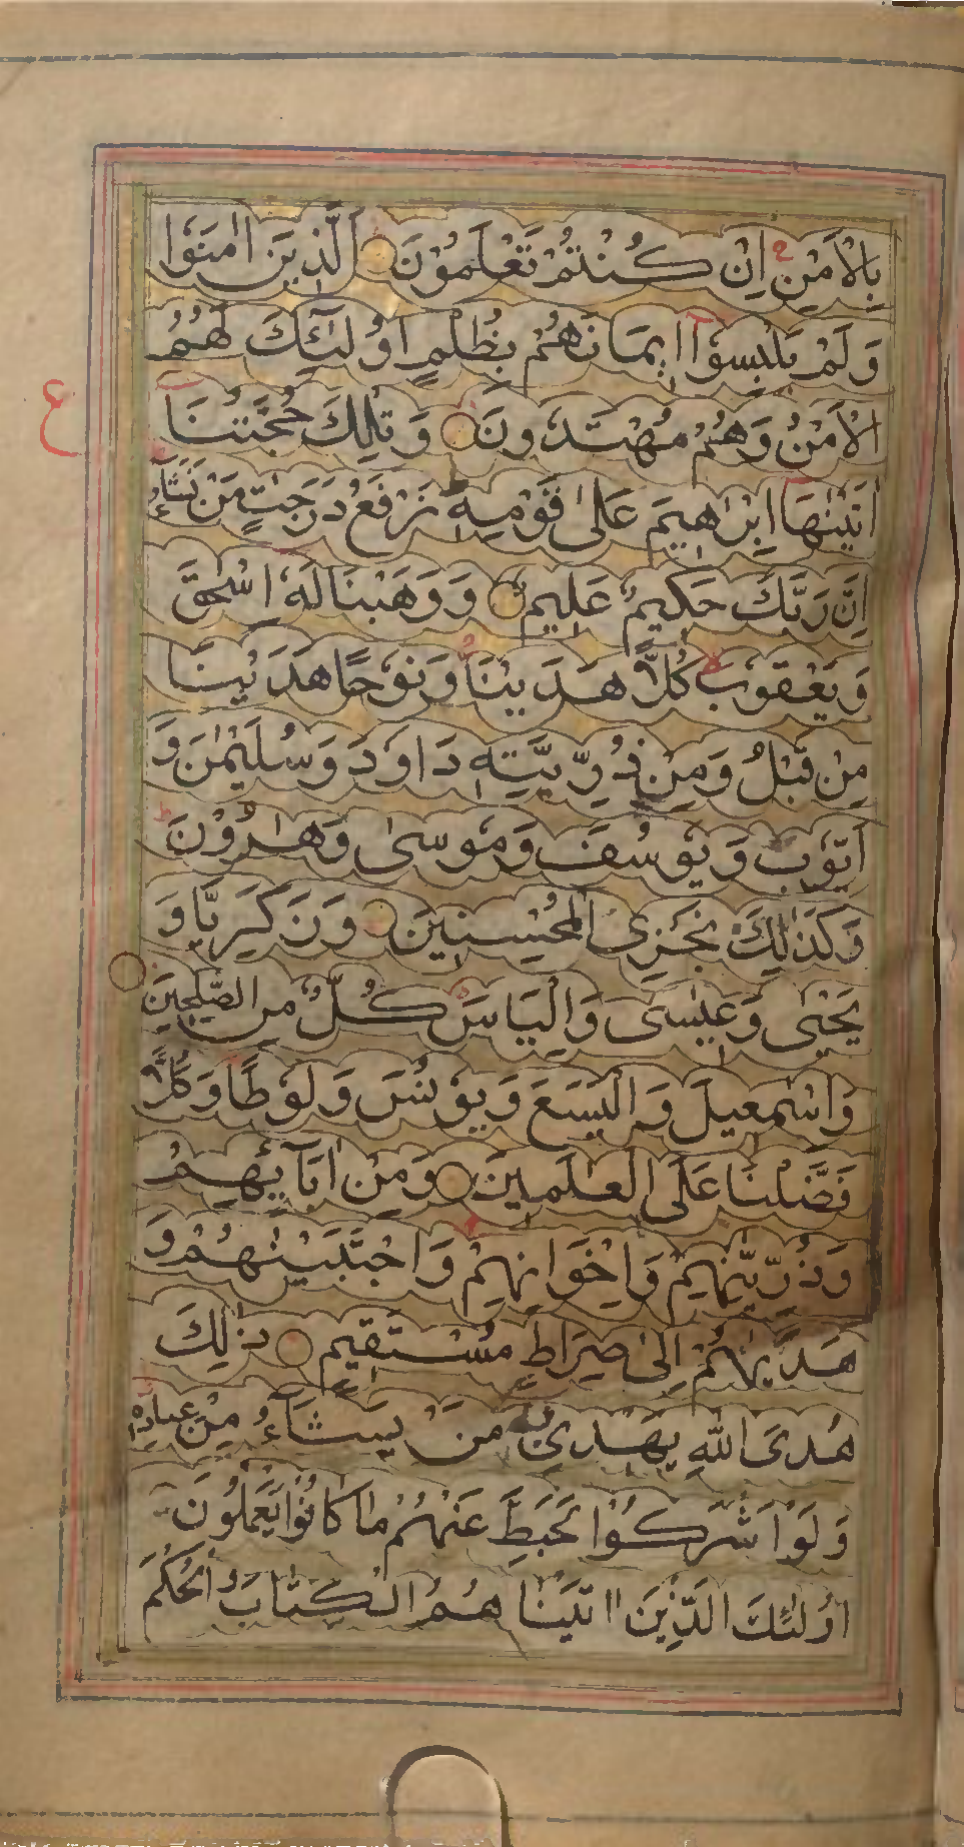 بِالْاَمْنِ اِنْ كُنْتُمْ تَعْلَمُوْنَ اَلَّذِيْنَ اٰمَنُوْا
وَلَمْ يَلْبِسُوْٓا اِيْمَانَهُمْ بِظُلْمٍ اُولٰٓئِكَ لَهُمُ
الْاَمْنُ وَهُمْ مُهْتَدُوْنَ وَتِلْكَ حُجَّتُنَآ
اٰتَيْنٰهَآ اِبْرٰهِيْمَ عَلٰى قَوْمِهٖ نَرْفَعُ دَرَجٰتٍ مَنْ نَشَآءُ
اِنَّ رَبَّكَ حَكِيْمٌ عَلِيْمٌ وَوَهَبْنَا لَهٗ اِسْحٰقَ
وَيَعْقُوْبَ كُلًّا هَدَيْنَا وَنُوْحًا هَدَيْنَا
مِنْ قَبْلُ وَمِنْ ذُرِّيَّتِهٖ دَاوٗدَ وَسُلَيْمٰنَ وَ
اَيُّوْبَ وَيُوْسُفَ وَمُوْسٰى وَهٰرُوْنَ
وَكَذٰلِكَ نَجْزِى الْمُحْسِنِيْنَ وَزَكَرِيَّا وَ
يَحْيٰى وَعِيْسٰى وَاِلْيَاسَ كُلٌّ مِنَ الصّٰلِحِيْنَ
وَاِسْمٰعِيْلَ وَالْيَسَعَ وَيُوْنُسَ وَلُوْطًا وَكُلًّا
فَضَّلْنَا عَلَى الْعٰلَمِيْنَ وَمِنْ اٰبَآئِهِمْ
وَذُرِّيّٰتِهِمْ وَاِخْوَانِهِمْ وَاجْتَبَيْنٰهُمْ وَ
هَدَيْنٰهُمْ اِلٰى صِرَاطٍ مُسْتَقِيْمٍ ذٰلِكَ
هُدَى اللّٰهِ يَهْدِيْ بِهٖ مَنْ يَشَآءُ مِنْ عِبَادِهٖ
وَلَوْ اَشْرَكُوْا لَحَبِطَ عَنْهُمْ مَا كَانُوْا يَعْمَلُوْنَ
اُولٰٓئِكَ الَّذِيْنَ اٰتَيْنَاهُمُ الْكِتَابَ وَالْحُكْمَ
ع